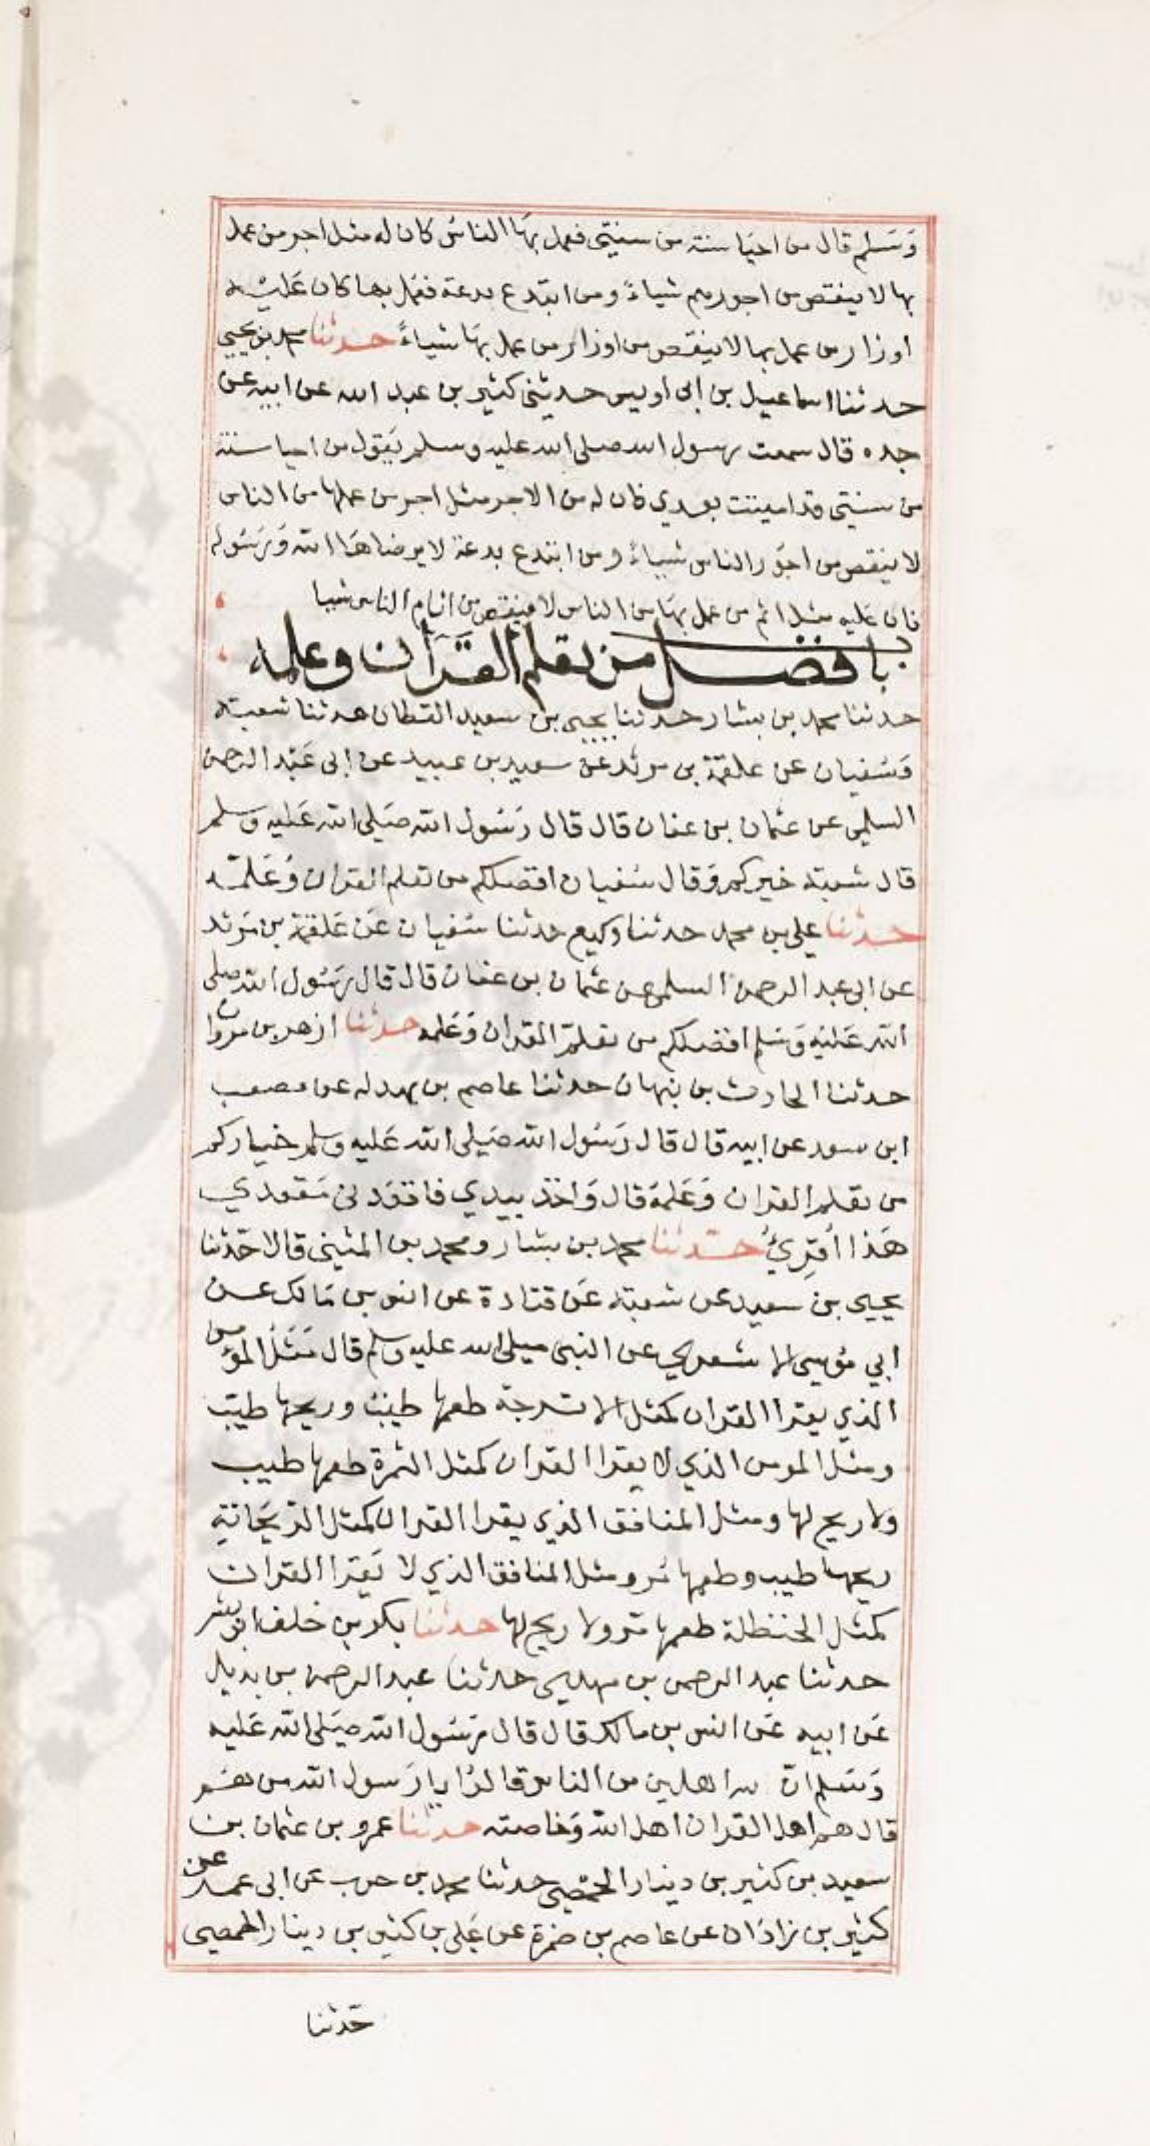 وَسَلم قال من احيا سنة من سنتي فعمل بهَا الناسُ كان له مثل اجر من عمل
بها لا ينقص من اجورهم شياءً ومن ابتدع بدعة فعمل بها كان عَليْه
اوزار من عمل بها لا ينقص من اوزار من عمل بهَا شياءً حدثنا محمد بن يحيي
حدثنا اسماعيل بن ابي اويس حدثني كثير بن عبد الله عن ابيه عن
جده قال سمعت رسول الله صلى الله عليه وسلم يَقول من احيا سنة
من سنتي قد اميتت بعدي فان له من الاجر مثل اجر من عملها من الناس
لا ينقص من اجوُر الناس شياءً ومن ابتدع بدعة لا يرضاها الله وَرسُوله
فان عَليه مثل اثم من عمل بهَا من الناس لا ينقص من اثام الناس شيا
باب فضل من تعلم القرآن وعلمه
حدثنا محمد بن بشار حدثنا يحيى بن سعيد القطان حدثنا شعبة
وَسُفيان عن علقمة بن مرثد عن سعيد بن عبيد عن ابي عَبْد الرحمن
السلمي عن عثمان بن عفان قال قال رَسُول الله صَلى الله عَليه وسلم
قال شعبة خيركم وَقال سُفيان افضلكم من تعلم القران وَعَلمَه
حدثنا علي بن محمد حدثنا وكيع حدثنا سُفيان عَن عَلقمة بن مَرثد
عن ابي عبد الرحمن السلمي عن عثمان بن عفان قال قال رَسُول الله صلى
الله عَليْه وَسَلم افضلكم من تعلم القران وَعَلمه حدثنا ازهر بن مروان
حدثنا الحارث بن نبهان حدثنا عاصم بن بهدله عن مصعب
ابن سعد عن ابيه قال قال رَسُول الله صَلى الله عَليه وسلم خياركم
من تعلم القران وَعَلمَه قال وَاخذ بيدي فاقعَدني مَقعدي
هَذا اُقرِئُ حدثنا محمد بن بشار ومحمد بن المثنى قالا حَدثنا
يحيي بن سعيد عن شعبة عَن قتادة عن انس بن مَالك عن
ابي مُوسى الاشعري عن النبي صلى الله عليه وسلم قال مَثلُ المؤمن
الذي يقرا القران كمثل الاترجة طعمها طيب وريحها طيب
ومثل المومن الذي لا يقرا القران كمثل الثمرة طعمها طيب
ولا ريح لها ومثل المنافق الذي يقرا القران كمثل الرَيحَانة
ريحها طيب وطعمها مُر ومثل المنافق الذي لا يَقرا القران
كمثل الحنظلة طعمها مر ولا ريح لها حدثنا بكر بن خلف ابو بشر
حدثنا عبد الرحمن بن مهدي حدثنا عبد الرحمن بن بديل
عَن ابيه عَن انس بن مالك قال قال رَسُول الله صَلى الله عَليه
وَسَلم ان لله اهلين من الناس قالوُا يا رَسول الله من هُم
قال هم اهل القران اهل الله وَخاصته حدثنا عمرو بن عثمان بن
سعيد بن كثير بن دينار الحمصي حدثنا محمد بن حرب عن ابي عمر عن
كثير بن زاذان عن عاصم بن ضمرة عن عَلي بن كثير بن دينار الحمصي
حَدثنا